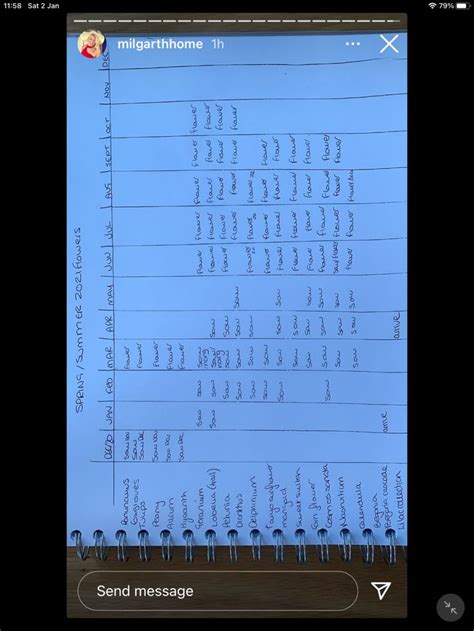 11:58 Sat 2 Jan
79%
milgarthhome 1h
SPRING / SUMMER 2021 flowers
DEC20 JAN FEB MAR APR MAY JUN JUL AUG SEPT OCT NOV DEC
Ranunculus sow nov flower
Foxgloves sow flower
Tulips sow dec
Peony sow nov flower
Allium sow nov flower
Hyacinth sow dec flower
Geranium sow sow sow flower flower flower flower flower
Lobelia (trail) sow sow sow sow flower flower flower flower flower
Petunia sow sow sow flower flower flower flower flower
Dianthus sow sow sow sow flower flower flower flower
Delphinium sow sow sow flower flower flower
Tangy sunflower sow sow flower flower flower flower
marigold sow sow sow sow flower flower flower flower
Sweet william sow sow flower flower flower flower
Cornflower sow sow sow flower flower flower flower
Cosmos sonata sow sow sow sow flower flower flower flower
Nasturtium sow sow sow flower flower flower
Calendula sow sow sow flower flower flower
Begonia
Begonia cascade arrive
Lilac collection arrive
Send message